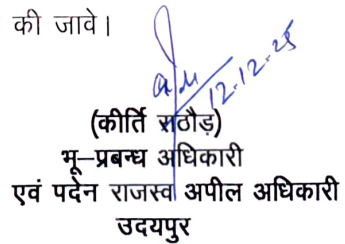 की जावे।
12.12.25
(कीर्ति राठौड़)
भू–प्रबन्ध अधिकारी
एवं पदेन राजस्व अपील अधिकारी
उदयपुर